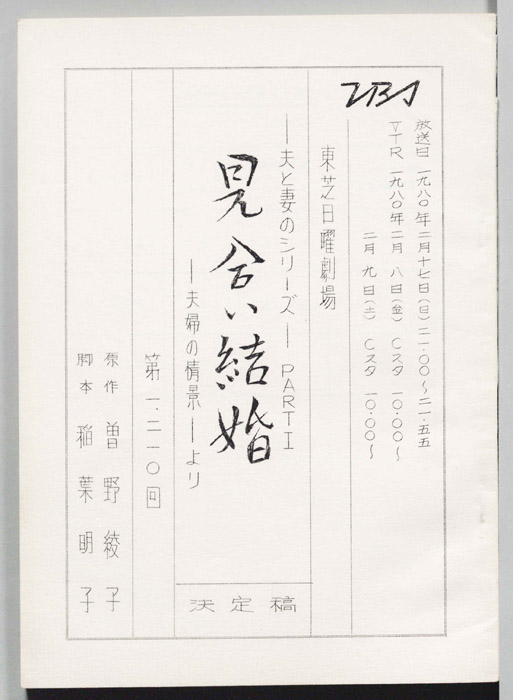 TBS
放送日 一九八〇年 二月十七日(日)二一:〇〇〜二一:五五
VTR 一九八〇年二月 八日(金) Cスタ 一〇:〇〇〜
二月 九日(土) Cスタ 一〇:〇〇〜
東芝日曜劇場
―夫と妻のシリーズ― PARTI
見合い結婚
―夫婦の情景―より
決定稿
第一、二一〇回
原作 曽野綾子
脚本 稲葉明子